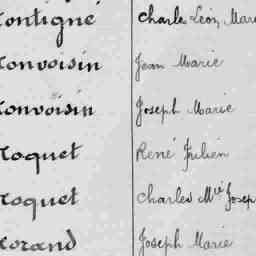 Montigné Charles Léon, Marie
Monvoisin Jean Marie
Monvoisin Joseph Marie
Moquet René Julien
Moquet Charles Mie Joseph
Morand Joseph Marie